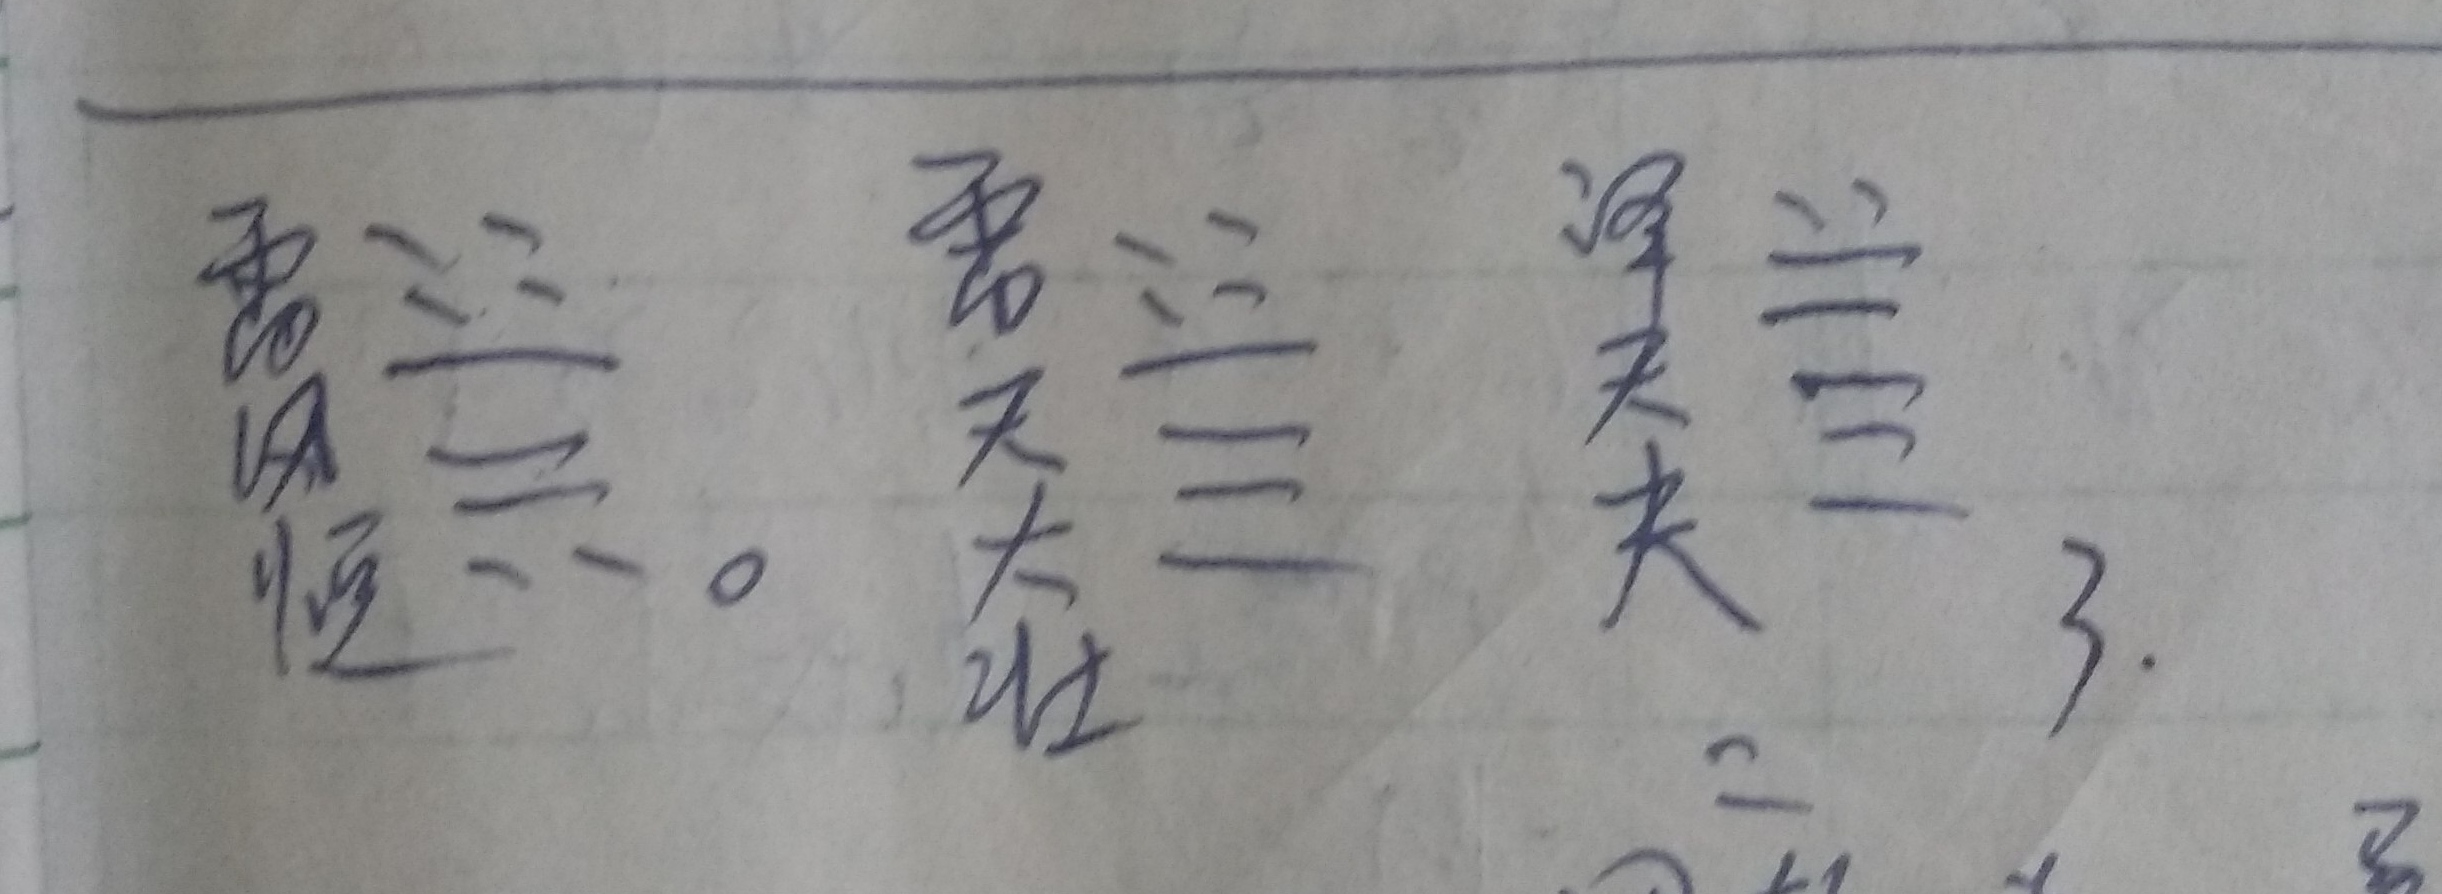 雷风恒
雷天大壮
泽天夬
3.
二